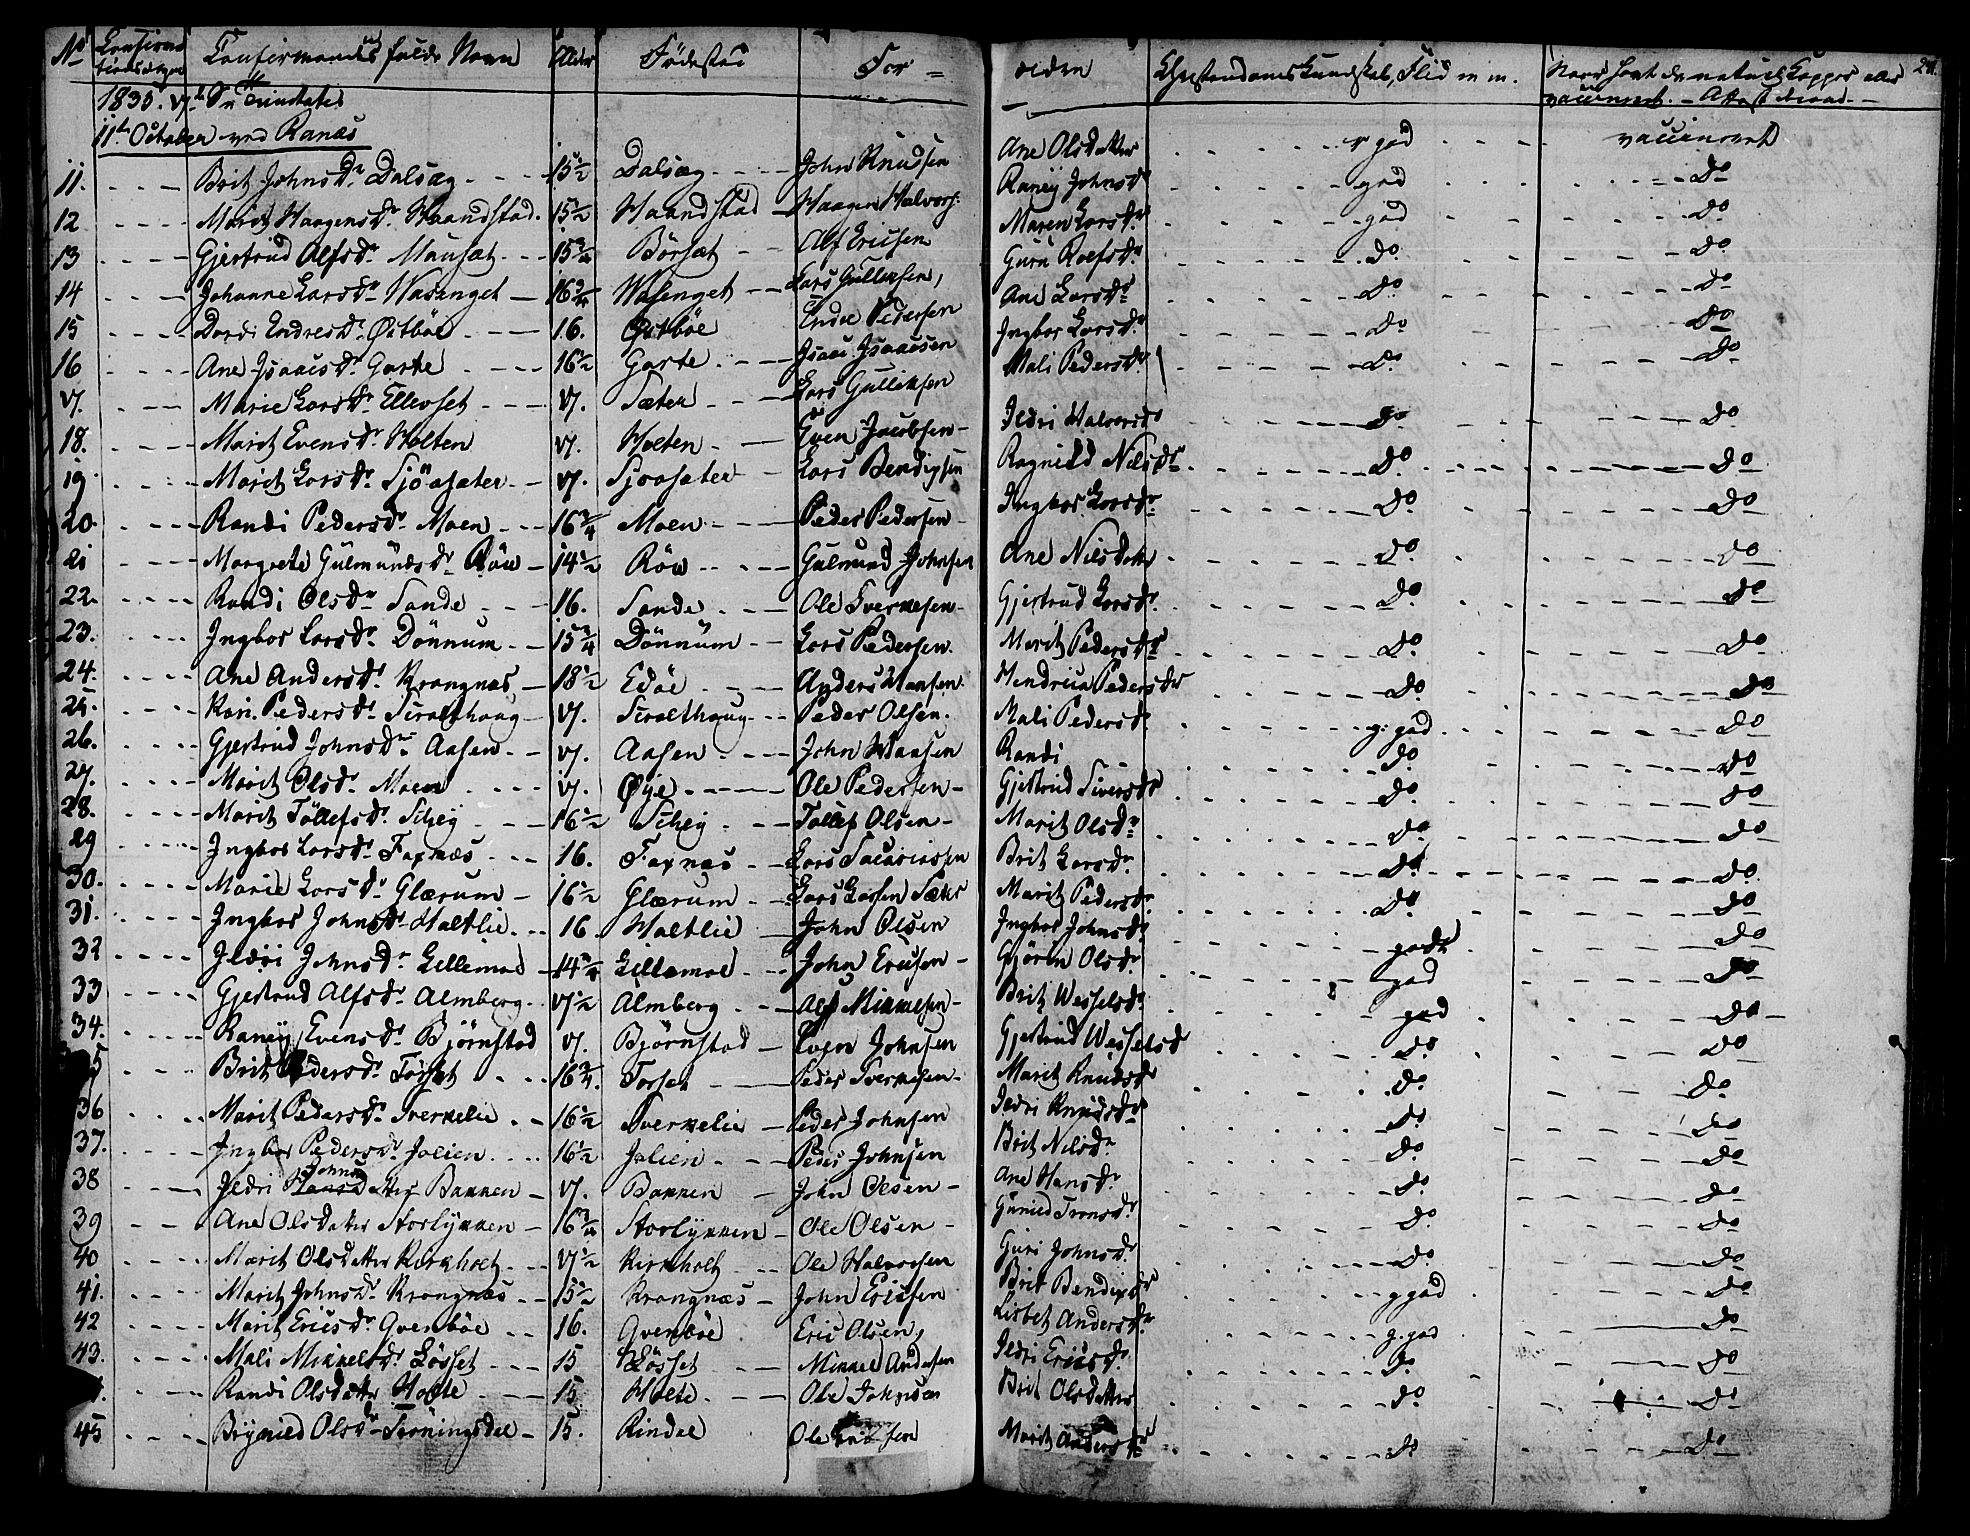 No Confirmationsdagen Confirmandens fulde Navn Alder Fødested For= ældre Christendomskundskab, Flid m m. Naar havt de naturl. Kopper eller vaccineret. - Attest derom. -
1835. 17de Sn. Trinitatis
11te October ved Ranæs
11. Brit Johnsdr Dalsæg 15½ Dalsæg John Knudsen Ane Olsdatter god vaccineret
12 Marit Haagensdr Haandstad 15½ Haandstad Haagen Halvors: Raney Johnsdr god do
13 Gjertrud Alfsdr Mauset 15¾ Börsæt Alf Ericsen Maren Larsdr god do
14 Johanne Larsdr Wasenget 16¾ Wasenget Lars Gulliksen, Guru Roefsdr do do
15 Dordi Endresdr Østböe 16. Østböe Endre Pedersen Ane Larsdr do do
16 Ane Isaacsdr Garte 16½ Garte Isaac Isaacsen Ingbor Larsdr do do
17. Marie Larsdr Ellevset 17. Sæter Lars Gulliksen Mali Pedersdr do do
18. Marit Evensdr Holten 17. Holten Even Jacobsen Ildri Halvorsdr do do
19 Marit Larsdr Sjöasæter 17. Sjöasæter Lars Bendigsen Ragnild Nilsdr do do
20. Randi Pedersdr Moen 16¾ Moen Peder Pedersen Ingbor Larsdr do do
21 Margrete Gulmundsdr Röw 14½ Röw Gulmund Johnsen Ane Nilsdatter do do
22. Randi Olsdr Sande 16. Sande Ole Sverkesen Gjertrud Larsdr do do
23. Ingbor Larsdr Dönnum 15¾ Dönnum Lars Pedersen Marit Pedersdr do do
24. Ane Andersdr Krangnæs 18½ Edöe Anders Hansen Hendrica Pedersdr do do
25. Kari Pedersdr Skralthaug 17. Skralthaug Peder Olsen Mali Pedersdr g. god do
26. Gjertrud Johnsdr Aasen 17. Aasen John Hansen Randi do do
27. Marit Olsdr Moen 17. Øye Ole Pedersen Gjertrud Siversdr do do
28. Marit Töllefsdr Schey 16½ Schey Tollef Olsen Marit Olsdr do do
29 Ingbor Larsdr Faxnæs 16. Faxnæs Lars Sacariassen Brit Larsdr do do
30. Marie Larsdr Glærum 16½ Glærum Lars Larsen Sæter Marit Pedersdr do do
31. Ingbor Johnsdr Haltlie 16. Haltlie John Olsen Ingbor Johnsdr godt do
32 Ildri Johnsdr Lillemoe 14¾ Lillemoe John Ericsen Gjören Olsdr god do
33 Gjertrud Alfsdr Almberg 17½ Almberg Alf Mikkelsen Brit Wesselsdr god do
34. Raney Evensdr Björnstad 17. Björnstad Even Johnsen Gjertrud Wesselsd do do
5 Brit Pedersdr Torset 16¾. Torset Peder Sverkesen Marit Knudsdr do do
36 Marit Pedersdr Sverkelie 16½ Sverkelie Peder Johnsen Ildri Knudsdr do do
37. Ingbor Pedersdr Jolien 16½ Jolien Peder Johnsen Brit Nilsdr do do
38 Ildri Johnsdatter Bakken 17. Bakken John Olsen Ane Hansdr do do
39 Ane Olsdatter Storlykken 16¾ Storlykken Ole Olsen Gunild Tronsdr do do
40 Marit Olsdatter Kirkholt 17½ Kirkholt Ole Halvorsen Guri Johnsdr do do
41. Marit Johnsdr Krangnæs 15½ Krangnæs John Ericsen Brit Bendixsdr g god do
42 Marit Ericsdr Qvenböe 16. Qvenböe Eric Olsen Lisbet Andersdr g. god do
43. Mali Mikkelsdr Lösset 15 Lösset Mikkel Andersen Ildri Ericsdr do do
Randi Olsdatter Holte 15 Holte Ole Johnsen Brit Olsdatter do do
45 Brynild Olsdr Tröningsdal 15. Rindal Ole Marit Andersdr do do